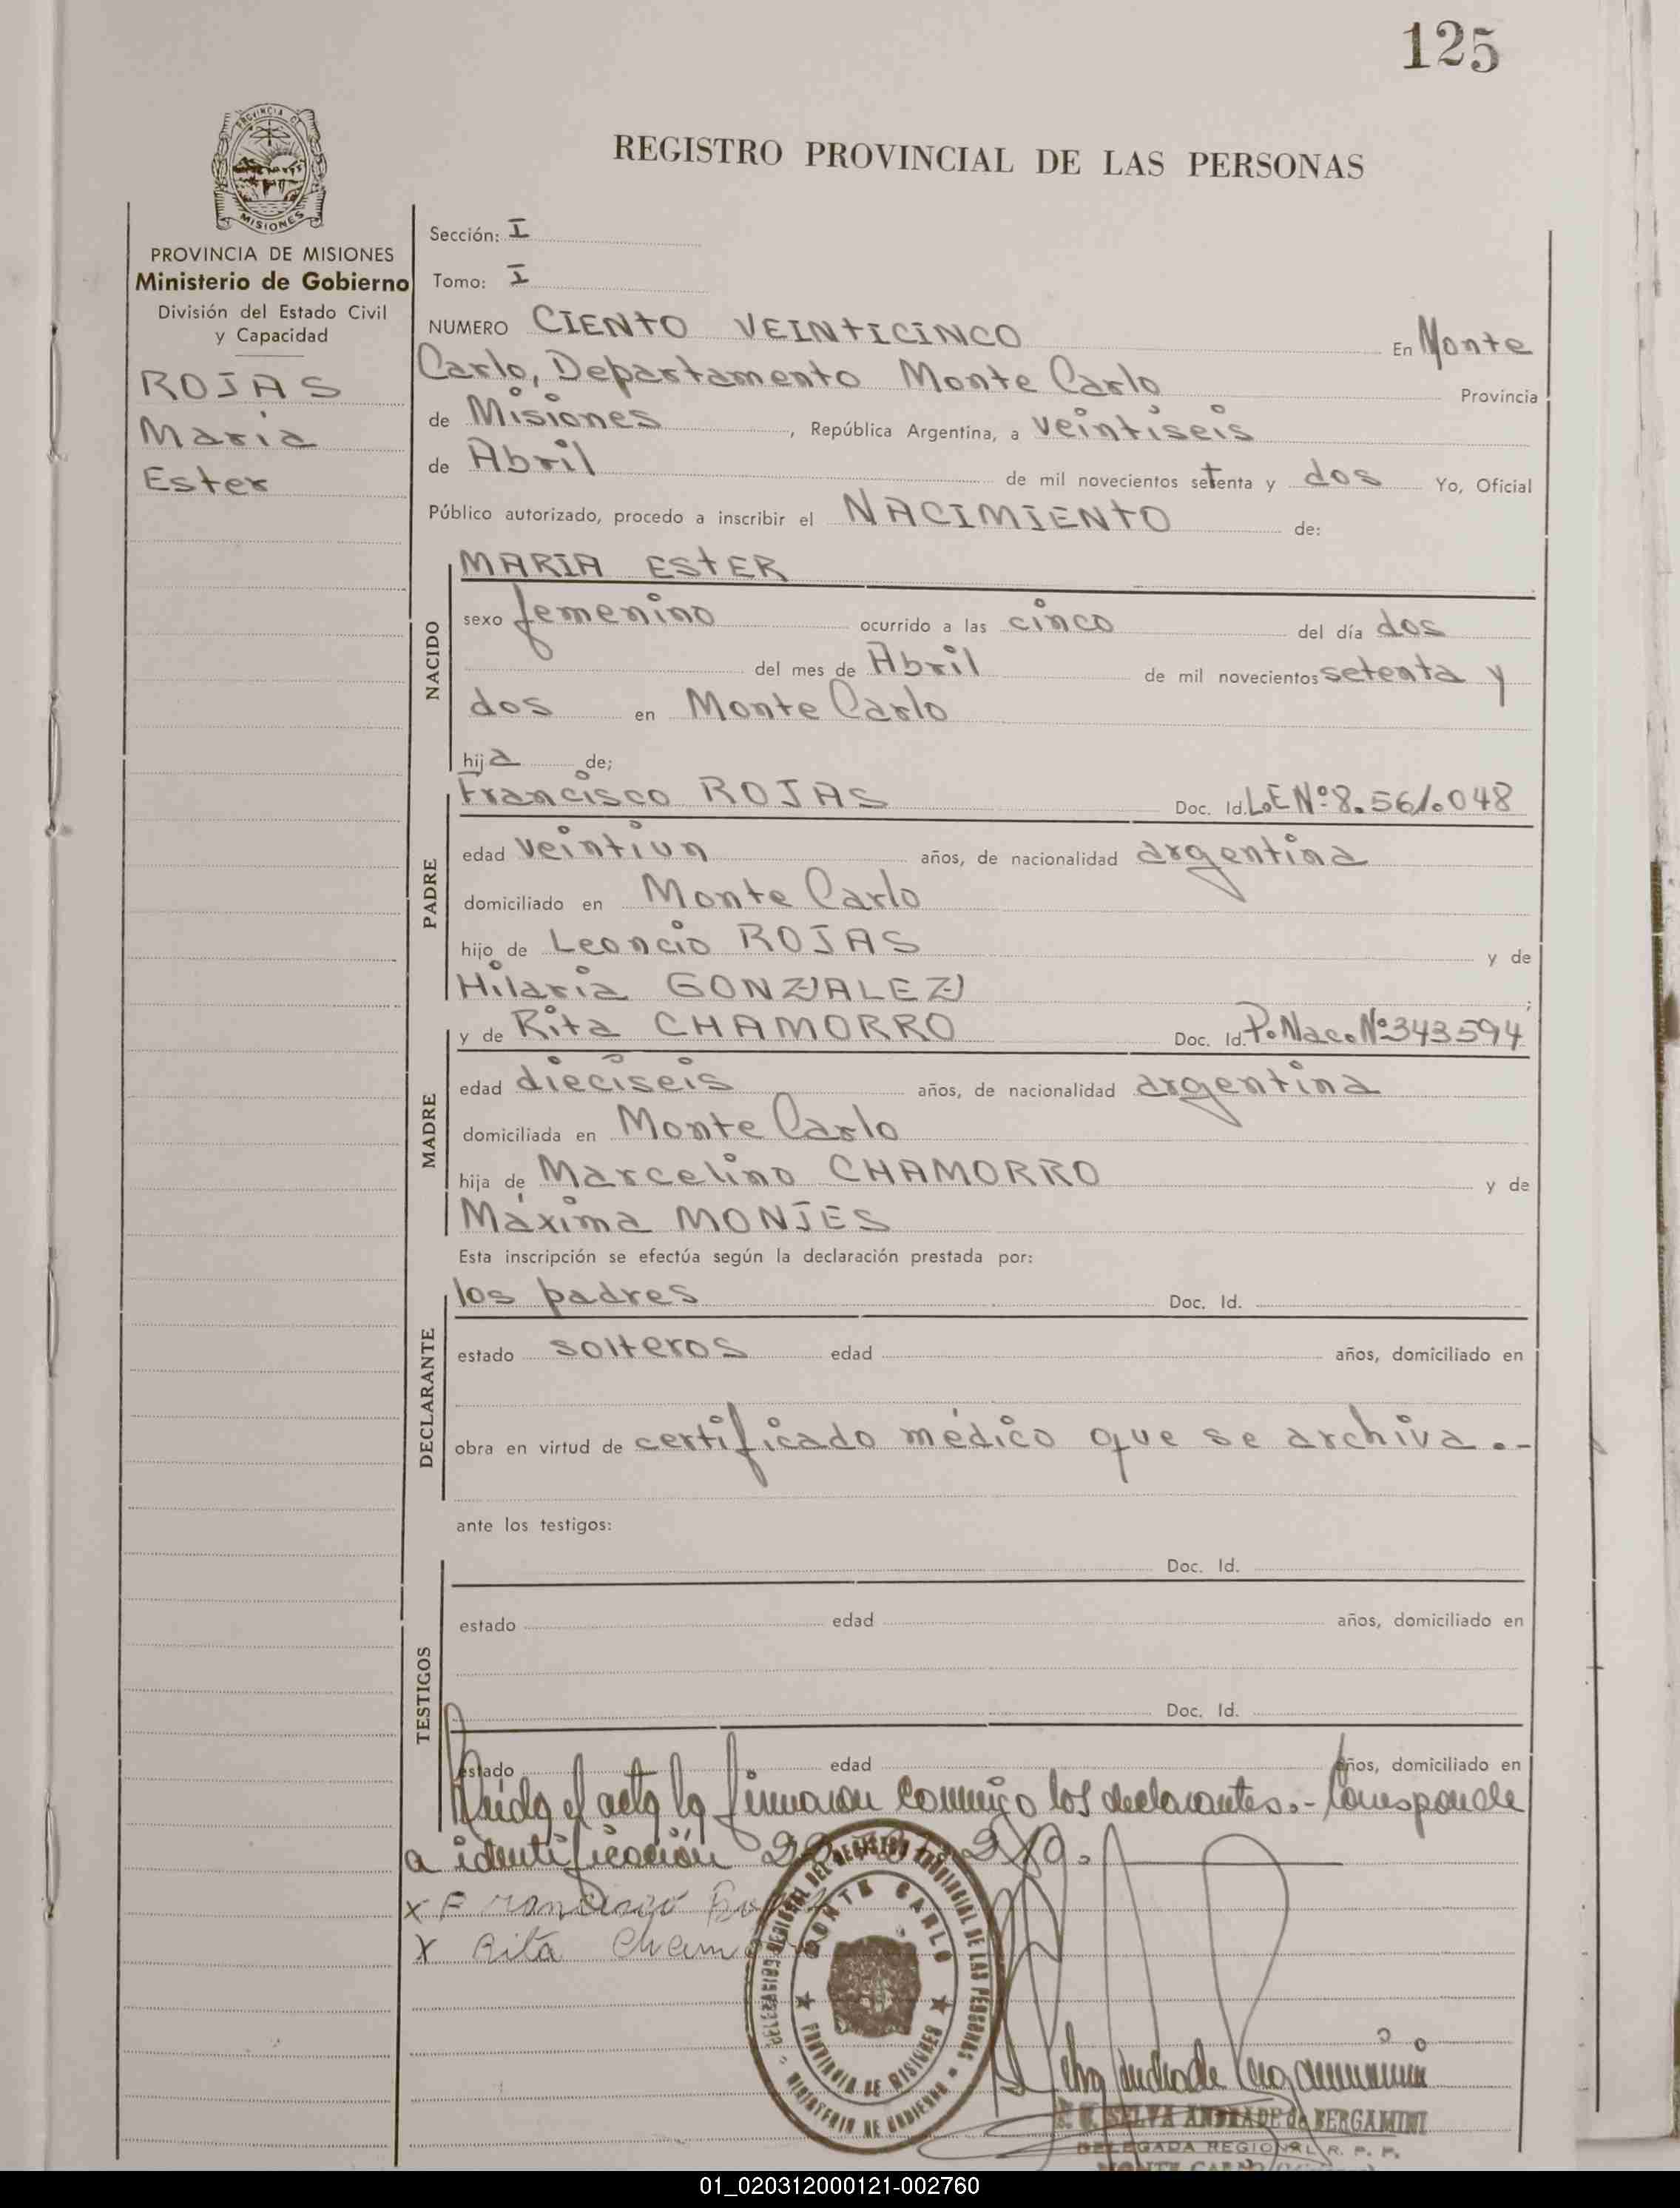 125
REGISTRO PROVINCIAL DE LAS PERSONAS
PROVINCIA DE MISIONES
Ministerio de Gobierno
División del Estado Civil
y Capacidad
ROJAS
María
Ester
Sección: I
Tomo: I
NUMERO CIENTO VEINTICINCO En Monte
Carlo, Departamento Monte Carlo Provincia
de Misiones, República Argentina, a veintiseis
de Abril de mil novecientos setenta y dos Yo, Oficial
Público autorizado, procedo a inscribir el NACIMIENTO de:
NACIDO
MARIA ESTER
sexo femenino ocurrido a las cinco del día dos
del mes de Abril de mil novecientos setenta y
dos en Monte Carlo
hija de;
PADRE
Francisco ROJAS Doc. Id. L.E Nº 8.561.048
edad veintiun años, de nacionalidad argentina
domiciliado en Monte Carlo
hijo de Leoncio ROJAS y de
Hilaria GONZALEZ ;
MADRE
y de Rita CHAMORRO Doc. Id. P.Nac. Nº 343594
edad dieciseis años, de nacionalidad argentina
domiciliada en Monte Carlo
hija de Marcelino CHAMORRO y de
Máxima MONJES
Esta inscripción se efectúa según la declaración prestada por:
DECLARANTE
los padres Doc. Id.
estado solteros edad años, domiciliado en
obra en virtud de certificado médico que se archiva.-
ante los testigos:
TESTIGOS
Doc. Id.
estado edad años, domiciliado en
Doc. Id.
estado edad años, domiciliado en
Leida el acta la firmaron conmigo los declarantes.- Corresponde
a identificación
x Francisco
x Rita
DELEGACION REGIONAL DEL REGISTRO PROVINCIAL DE LAS PERSONAS
MONTE CARLO
PROVINCIA DE MISIONES
MINISTERIO DE GOBIERNO
SELVA ANDRADE de BERGAMINI
DELEGADA REGIONAL R. P. P.
MONTE CARLO
01_020312000121-002760